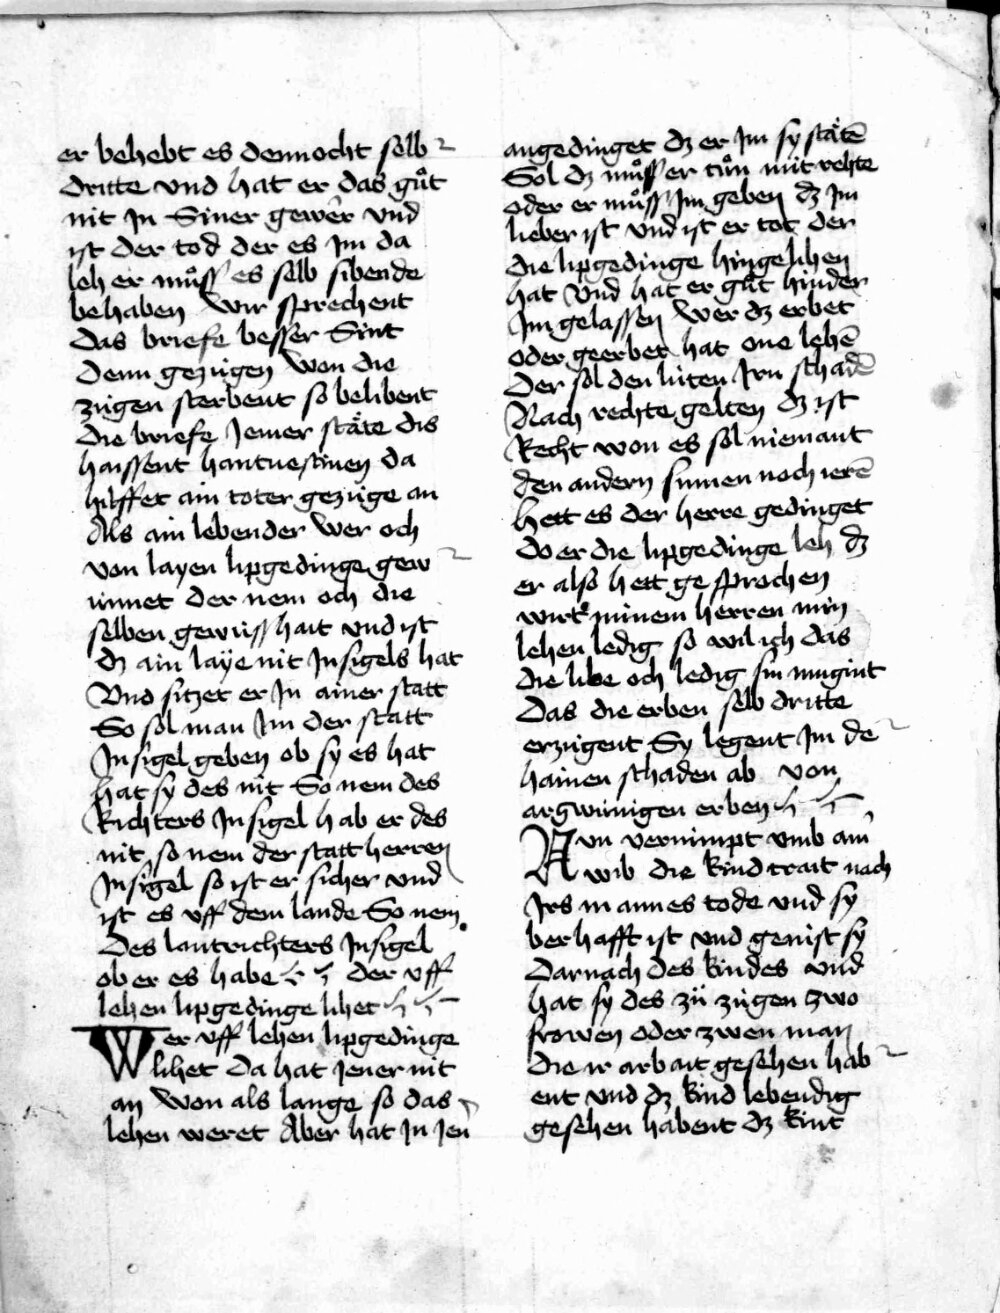 er behebt es dennocht selb
dritte vnd hat er das gůt
nit Jn Siner gewêr vnd
ist der tod der es Jm da
leh er můss es selb sibende
behaben Wir sprechent
das briefe besser Sint
denn gezùgen Won die
zùgen sterbent so belibent
die briefe Jemer stäte dis
haissent hantuestinen da
hilffet ain toter gezùge an
Als ain lebender Wer och
von layen lipgedinge gew
innet der nem och die
selben gewisshait vnd ist
dz ain laÿe nit Jnsigels hat
Vnd sitzet er Jn ainer statt
So sol man Jm der statt
Jnsigel geben ob sy es hat
hat sy des nit So nem des
Richters Jnsigel hab er des
nit so nem der statt herren
Jnsigel so ist er sicher vnd
ist es vff dem lande So nem
Des lantrichters Jnsigel
ob er es habe der vff
lehen lipgedinge lihet
Wer vff lehen lipgedinge
lihet Da hat Jener nit
an Won als lange so das
lehen weret Aber hat Jn Jen
angedinget dz er Jm sy stätē
Sol dz můss er tůn mit rehte
oder er můss Jm geben dz Jm
lieber ist vnd ist er tot der
die lipgedinge hingelihen
hat Vnd hat er gůt hinder
Jm gelassen Wer dz erbet
oder geerbet hat one lehē
Der sol den lùten Jrn schadē
Nach rechte gelten dz ist
Recht won es sol niemant
den andern sumen noch ierē
Hett es der herre gedinget
do er die lipgedinge leh dz
er also hett gesprochen
wirt minem herren min
lehen ledig so wil ich das
die libe och ledig sin mugint
Das die erben selb dritte
erzùgent Sy legent Jm de
hainen schaden ab von
argwinigen erben
Nvn vernimpt vmb ain
wib die kind trait nach
Jrs mannes tode vnd sy
berhafft ist vnd genist sy
Darnach des kindes vnd
hat sy des zü zùgen zwo
frowen oder zwen man
die ir arbait gesehen hab
ent vnd dz kind lebendig
gesehen habent dz kint